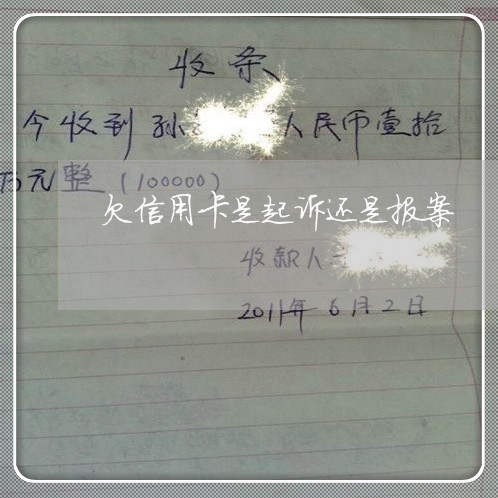 收条
今收到孙 人民币壹拾
万元整(100000)
欠信用卡是起诉还是报案
收款人
2011年6月2日